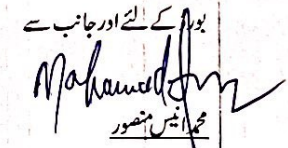 بورڈ کے لئے اور جانب سے
محمد انیس منصور